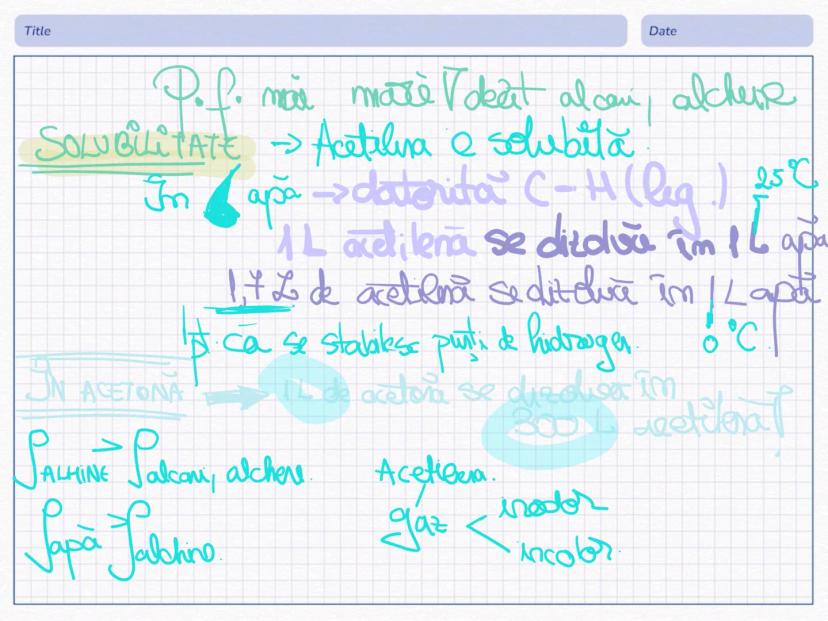 Title
Date
P.f. mai mare decât alcani, alchene
SOLUBILITATE → Acetilena e solubilă.
În apă → datorită C-H (leg.)
25°C
1 L acetilenă se dizolvă în 1 L apă
1,7 L de acetilenă se dizolvă în 1 L apă
0°C
pt că se stabilesc punți de hidrogen.
ÎN ACETONĂ → 1L de acetonă se dizolvă în
300 L acetilenă
ρ ALHINE > ρ alcani, alchene.
ρ apă > ρ alchine.
Acetilena.
gaz < inodor
incolor.